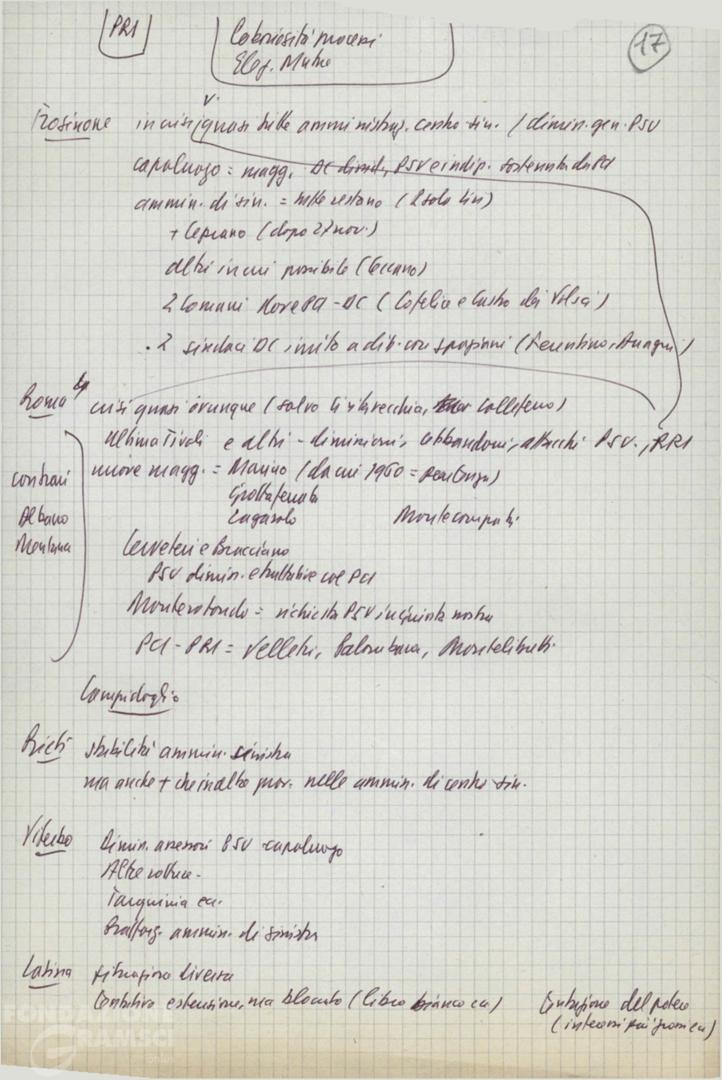 PRI
17
Laboriosità processi
Eleg. Mature
Frosinone in crisi quasi tutte amministraz. centro-sin. / dimin. gen. PSU
capoluogo = magg. DC dissid., PSU e indip. sostenuta da PCI
ammin. di sin. = tutte restano (2 solo Liri)
+ Ceprano (dopo 27 nov.)
altri in cui possibile (Ceccano)
2 Comuni dove PCI - DC (Cofelia e Castro dei Volsci)
2 sindaci DC invito a dib. con spaziani (Ferentino, Anagni)
Roma crisi quasi ovunque (salvo Civitavecchia, Colleferro)
ultima Tivoli e altri - dimissioni, abbandoni, attacchi PSU, PRI
nuove magg. = Marino (da cui 1960 =
Grottaferrata
Zagarolo Montecompatri
contrari
Albano
Mentana
Cerveteri e Bracciano
PSU dimis. e trattative col PCI
Monterotondo = richiesta PSU in giunta nostra
PCI - PRI = Velletri, Palombara, Montelibretti
Campidoglio
Rieti stabilità ammin. sinistra
ma anche + che in altre prov. nelle ammin. di centro sin.
Viterbo Dimis. assessori PSU capoluogo
Altre rotture -
Tarquinia ecc.
Rafforz. ammin. di sinistra
Latina situazione diversa
estensione, ma bloccato (libro bianco ecc)
Gestione del potere
FONDAZIONE
GRAMSCI